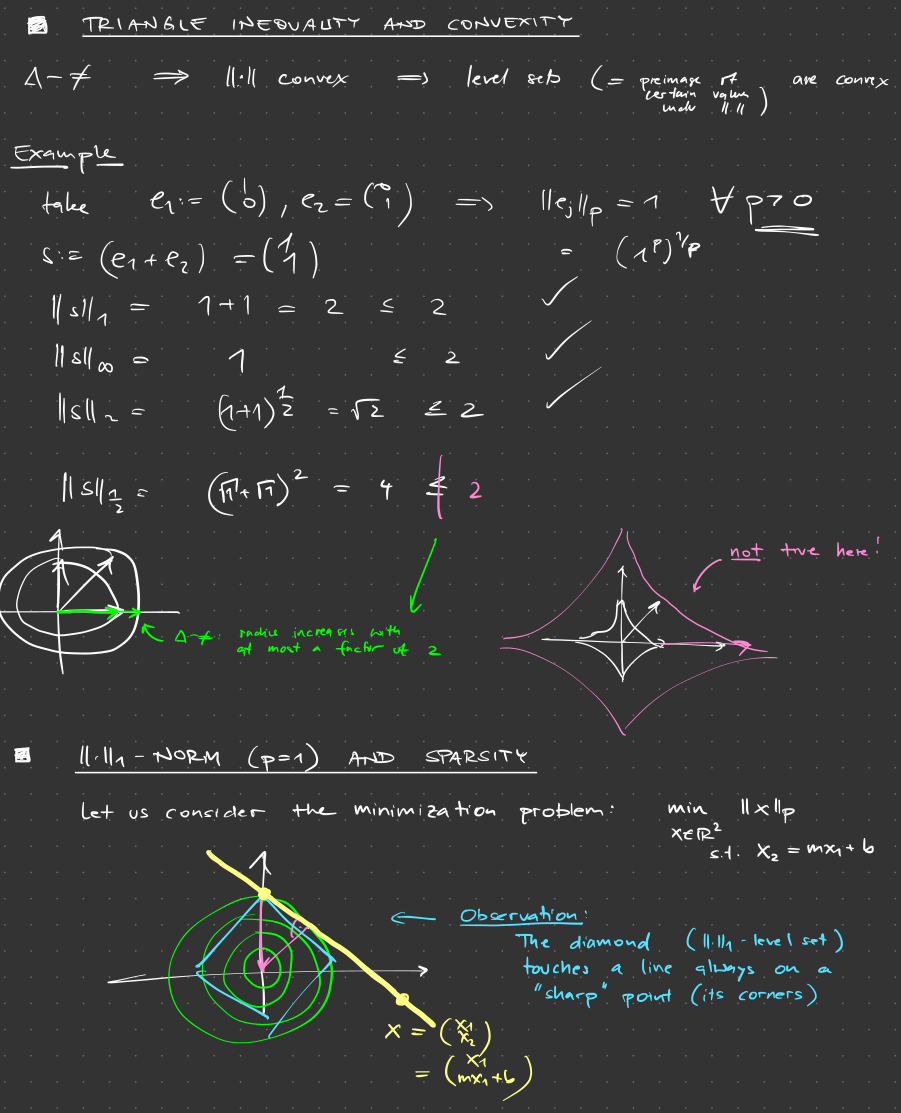 TRIANGLE INEQUALITY AND CONVEXITY
Δ-≠ ⟹ ||·|| convex ⟹ level sets (= preimage of certain values under ||·||) are convex
Example
take e₁ := (1 0), e₂ = (0 1) ⟹ ||eⱼ||ₚ = 1 ∀ p>0
= (1ᵖ)^1/p
s := (e₁ + e₂) = (1 1)
||s||₁ = 1+1 = 2 ≤ 2 ✓
||s||∞ = 1 ≤ 2 ✓
||s||₂ = (1+1)^1/2 = √2 ≤ 2 ✓
||s||_1/2 = (√1 + √1)² = 4 ≰ 2
not true here!
Δ-≠: radius increases with
at most a factor of 2
||·||₁ - NORM (p=1) AND SPARSITY
Let us consider the minimization problem: min ||x||ₚ
x∈ℝ²
s.t. x₂ = mx₁ + b
Observation:
The diamond (||·||₁ - level set)
touches a line always on a
"sharp" point (its corners)
x = (x₁ x₂)
= (x₁ mx₁+b)